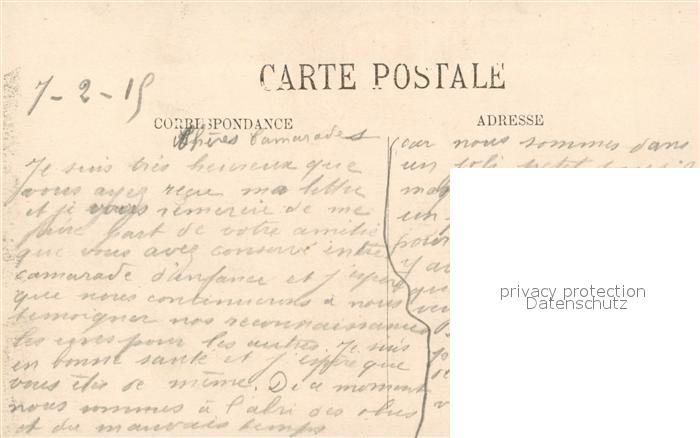 7-2-15
CARTE POSTALE
CORRESPONDANCE
ADRESSE
Chères Camarades
Je suis très heureux que
vous ayez reçue ma lettre
et je vous remercie de me
faire part de votre amitié
que vous avez conservé entre
camarade d'enfance et j'espère
que nous continuerons à nous
temoigner nos reconnaissances
les unes pour les autres. Je suis
en bonne santé et j'espère que
vous êtes de même. De ce moment
nous sommes à l'abri des obus
et du mauvais temps
car nous sommes dans
un joli petit
un
y a
privacy protection
Datenschutz